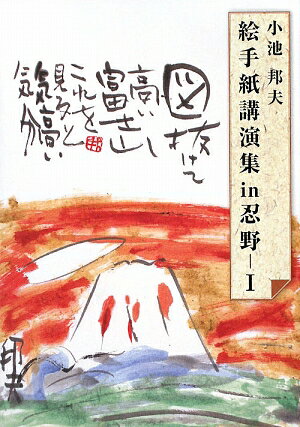 小池 邦夫
絵手紙講演集 in 忍野―I
図抜けて
高い
富士山
これを
見ると
気高い
気分